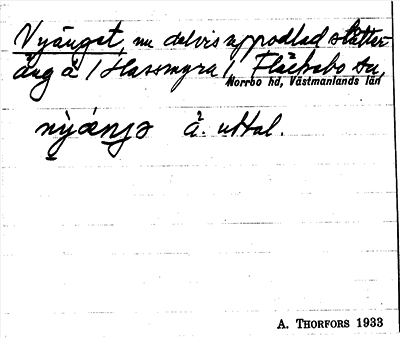 Vyänget, nu delvis uppodlad slåtter-
äng å /Hassmyra/, Fläckebo sn,
Norrbo hd, Västmanlands län
å. uttal.
A. THORFORS 1933